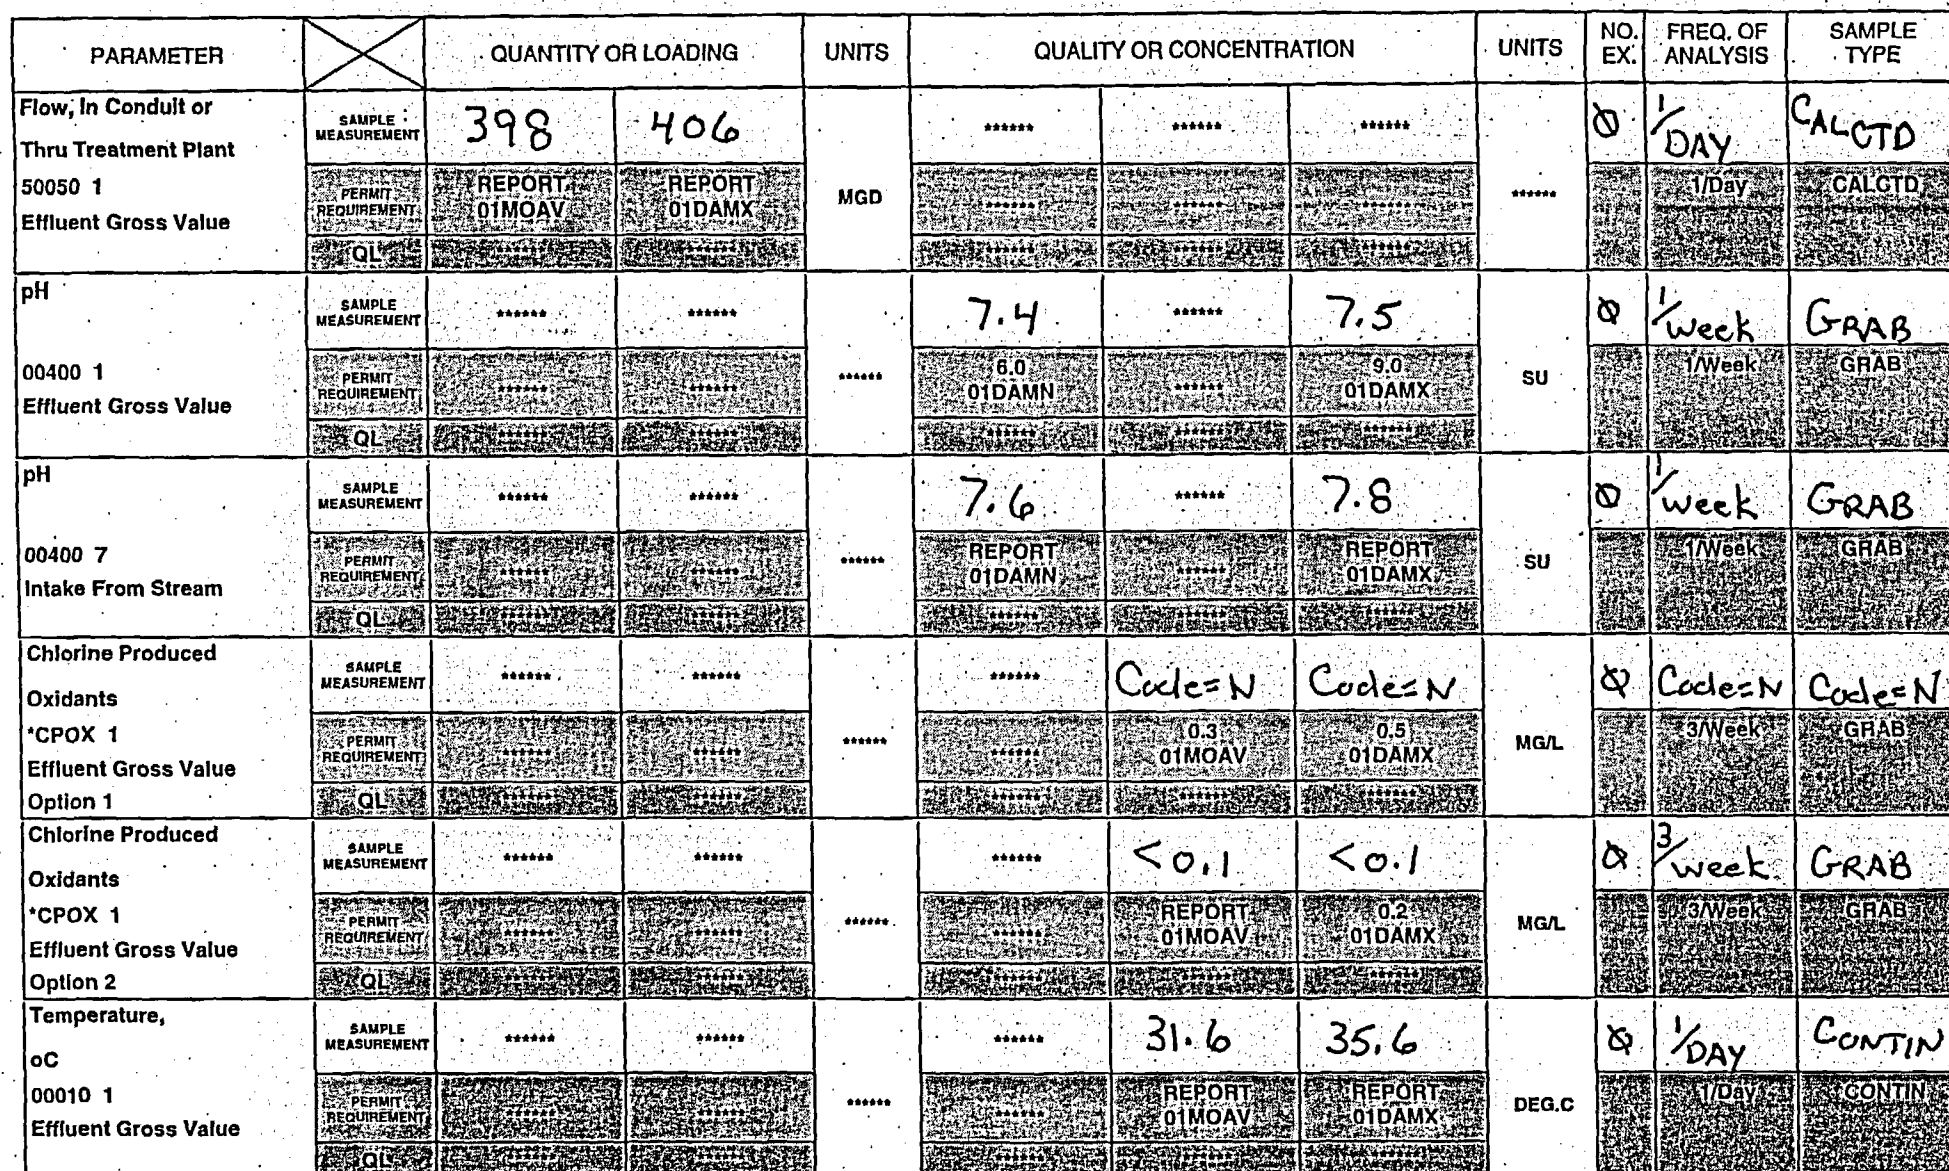 PARAMETER QUANTITY OR LOADING UNITS QUALITY OR CONCENTRATION UNITS NO. EX. FREQ. OF ANALYSIS SAMPLE TYPE
Flow, In Conduit or
Thru Treatment Plant
50050 1
Effluent Gross Value
SAMPLE MEASUREMENT 398 406 ****** ****** ****** Ø 1/DAY CALCTD
PERMIT REQUIREMENT REPORT 01MOAV REPORT 01DAMX MGD ****** ****** ****** ****** 1/Day CALCTD
QL ****** ****** ****** ****** ******
pH
00400 1
Effluent Gross Value
SAMPLE MEASUREMENT ****** ****** 7.4 ****** 7.5 Ø 1/week GRAB
PERMIT REQUIREMENT ****** ****** ****** 6.0 01DAMN ****** 9.0 01DAMX SU 1/Week GRAB
QL ****** ****** ****** ****** ******
pH
00400 7
Intake From Stream
SAMPLE MEASUREMENT ****** ****** 7.6 ****** 7.8 Ø 1/week GRAB
PERMIT REQUIREMENT ****** ****** ****** REPORT 01DAMN ****** REPORT 01DAMX SU 1/Week GRAB
QL ****** ****** ****** ****** ******
Chlorine Produced
Oxidants
*CPOX 1
Effluent Gross Value
Option 1
SAMPLE MEASUREMENT ****** ****** ****** Code=N Code=N Ø Code=N Code=N
PERMIT REQUIREMENT ****** ****** ****** ****** 0.3 01MOAV 0.5 01DAMX MG/L 3/Week GRAB
QL ****** ****** ****** ****** ******
Chlorine Produced
Oxidants
*CPOX 1
Effluent Gross Value
Option 2
SAMPLE MEASUREMENT ****** ****** ****** <0.1 <0.1 Ø 3/week GRAB
PERMIT REQUIREMENT ****** ****** ****** ****** REPORT 01MOAV 0.2 01DAMX MG/L 3/Week GRAB
QL ****** ****** ****** ****** ******
Temperature,
oC
00010 1
Effluent Gross Value
SAMPLE MEASUREMENT ****** ****** ****** 31.6 35.6 Ø 1/DAY CONTIN
PERMIT REQUIREMENT ****** ****** ****** ****** REPORT 01MOAV REPORT 01DAMX DEG.C 1/Day CONTIN
QL ****** ****** ****** ****** ******